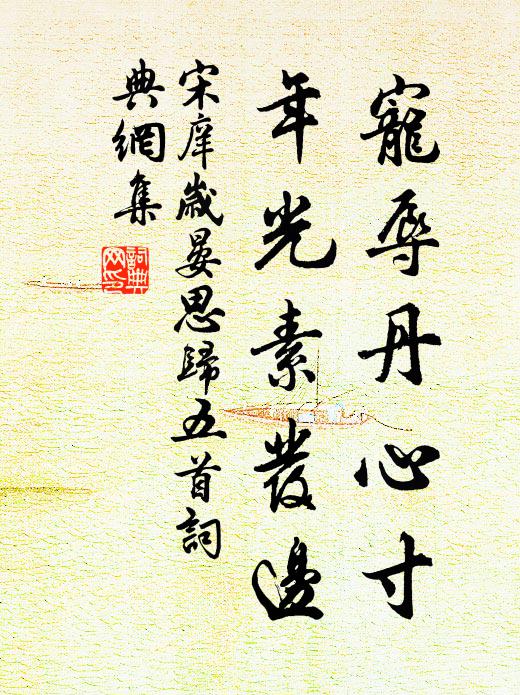 寵辱丹心寸
年光素髮邊
宋庠歲晏思歸五首詞
典網集
詞典網印